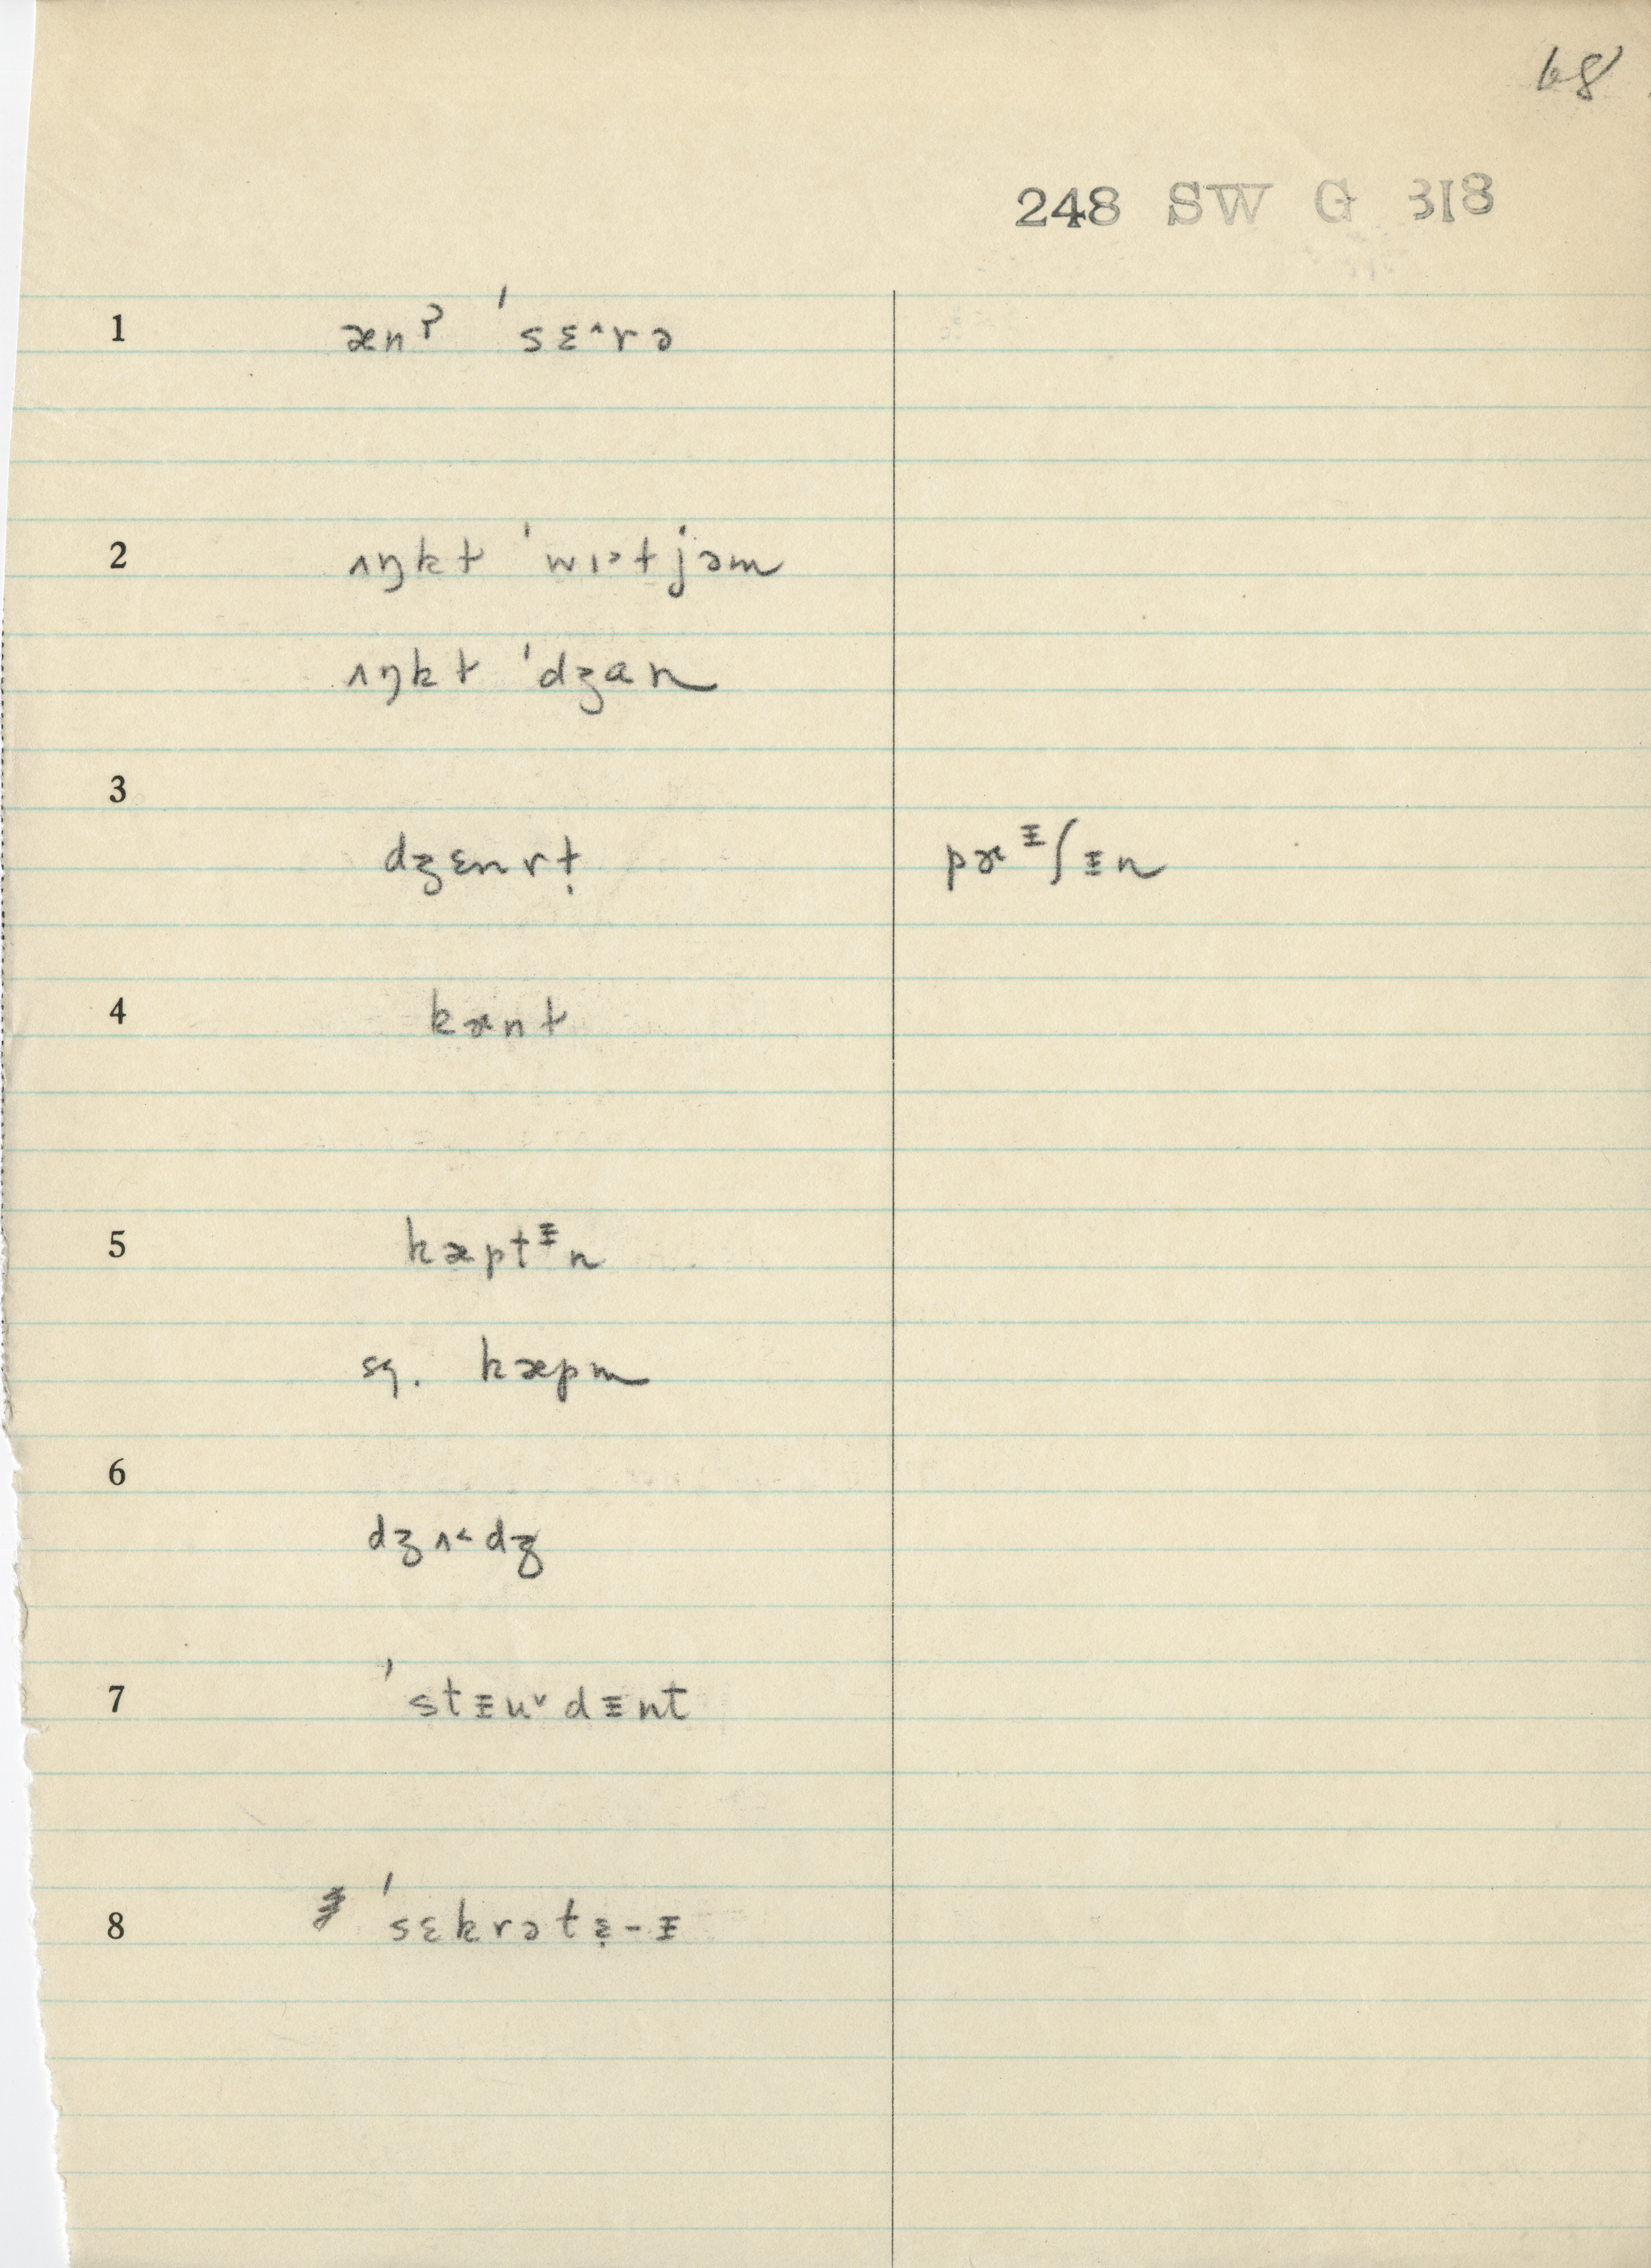 68
248 SW G 318
1 ænʔ ˈsɛ^rə
2 ʌŋkt ˈwɪ˃tjəm
ʌŋkt ˈdʒɑn
3
dʒɛnrt̩ pæᵻʃᵻn
4 kænt
5 kæptᵻn
sq. kæpm
6
dʒʌ˂dʒ
7 ˈstᵻu˅dᵻnt
8 ˈsɛkrətɛ̣-ᵻ